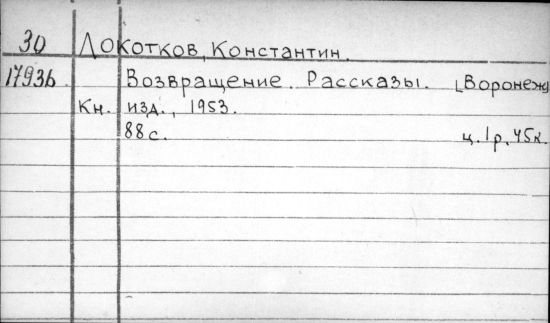 30 Локотков, Константин.
1793б Возвращение. Рассказы. [Воронеж]
Кн. изд., 1953.
88 с. ц. 1 р. 45 к.